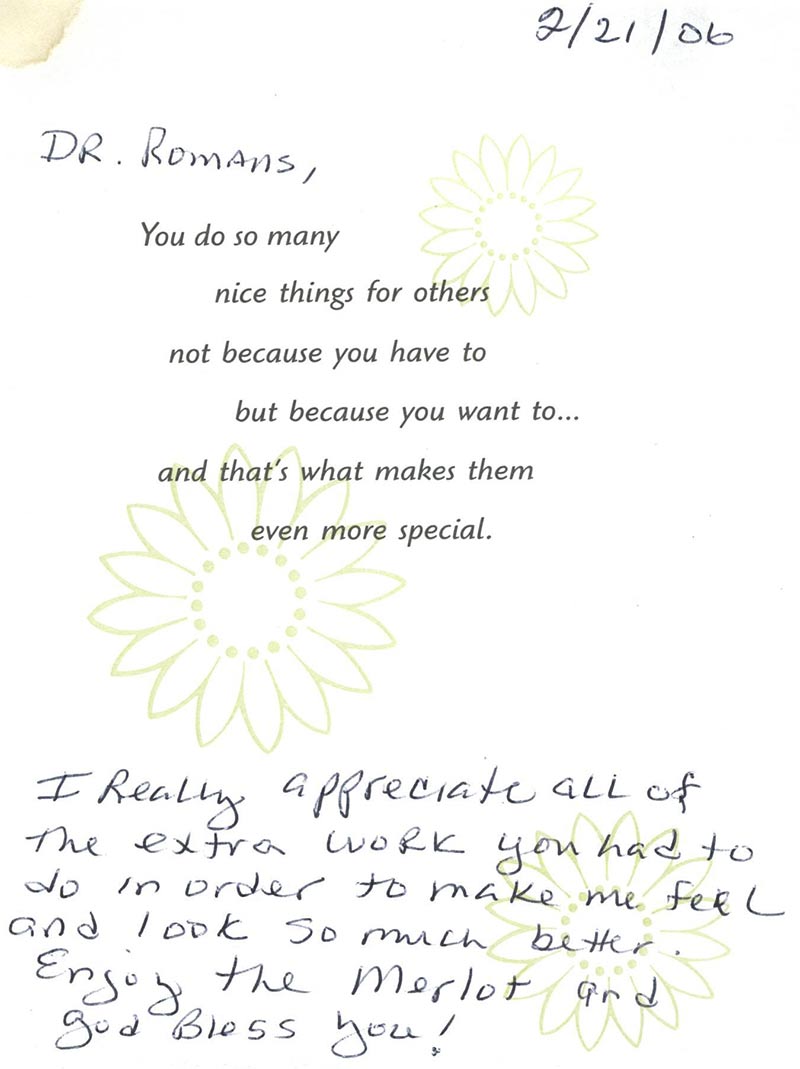 2/21/06
DR. Romans,
You do so many
nice things for others
not because you have to
but because you want to...
and that's what makes them
even more special.
I Really appreciate all of
the extra work you had to
do in order to make me feel
and look so much better.
Enjoy the Merlot and
god Bless you!